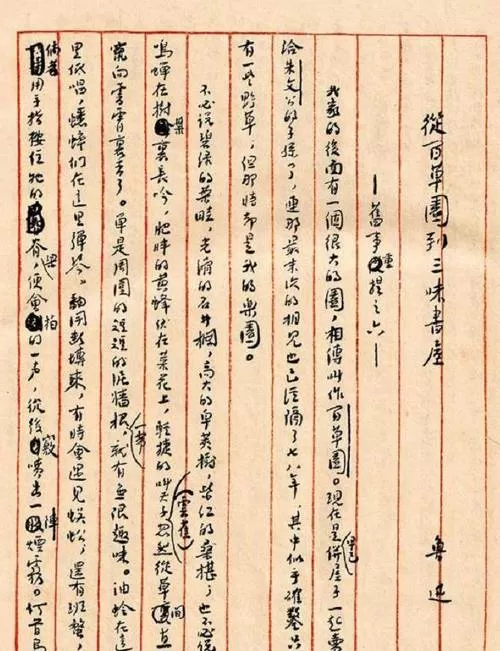 從百草園到三味書屋
魯迅
——舊事重提之六——
我家的後面有一個很大的園，相傳叫作百草園。現在是早已併屋子一起賣
給朱文公的子孫了，連那最末次的相見也已經隔了七八年，其中似乎確鑿只
有一些野草，但那時却是我的樂園。
不必說碧綠的菜畦，光滑的石井欄，高大的皂莢樹，紫红的桑椹；也不必說
鳴蟬在樹葉裏長吟，肥胖的黄蜂伏在菜花上，輕捷的叫天子（雲雀）忽然從草間直
竄向雲霄裏去了。單是周圍的短短的泥牆根一帶，就有無限趣味。油蛉在這
里低唱，蟋蟀們在這里彈琴。翻開断塼來，有時會遇見蜈蚣；還有班蝥，
倘若用手指按住牠的脊梁，便會拍的一声，從後竅噴出一陣煙霧。何首烏